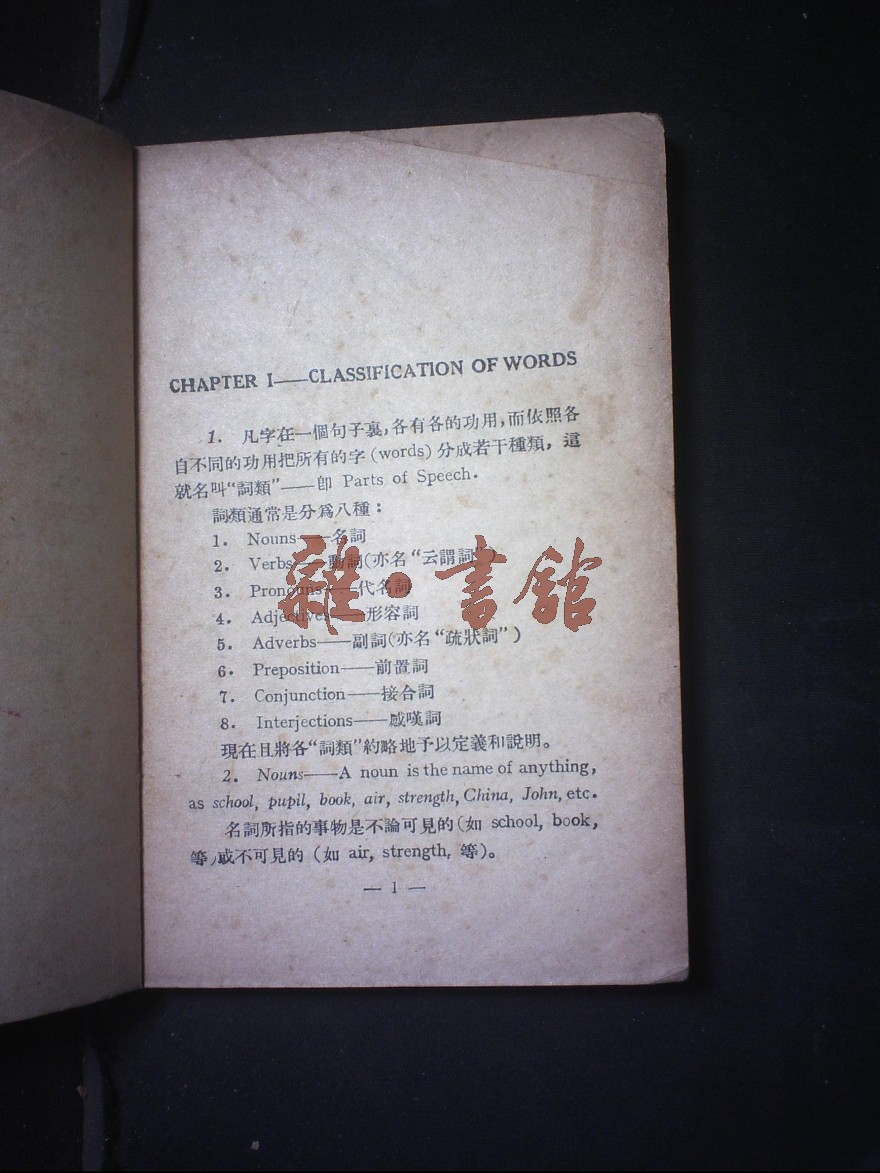 CHAPTER I——CLASSIFICATION OF WORDS
1. 凡字在一個句子裏,各有各的功用,而依照各
自不同的功用把所有的字(words)分成若干種類,這
就名叫“詞類”——卽 Parts of Speech.
詞類通常是分爲八種:
1. Nouns——名詞
2. Verbs——動詞(亦名“云謂詞”)
3. Pronouns——代名詞
4. Adjectives——形容詞
5. Adverbs——副詞(亦名“疏狀詞”)
6. Preposition——前置詞
7. Conjunction——接合詞
8. Interjections——感嘆詞
現在且將各“詞類”約略地予以定義和說明。
2. Nouns——A noun is the name of anything,
as school, pupil, book, air, strength, China, John, etc.
名詞所指的事物是不論可見的(如 school, book,
等)或不可見的 (如 air, strength, 等)。
— 1 —
雜·書館